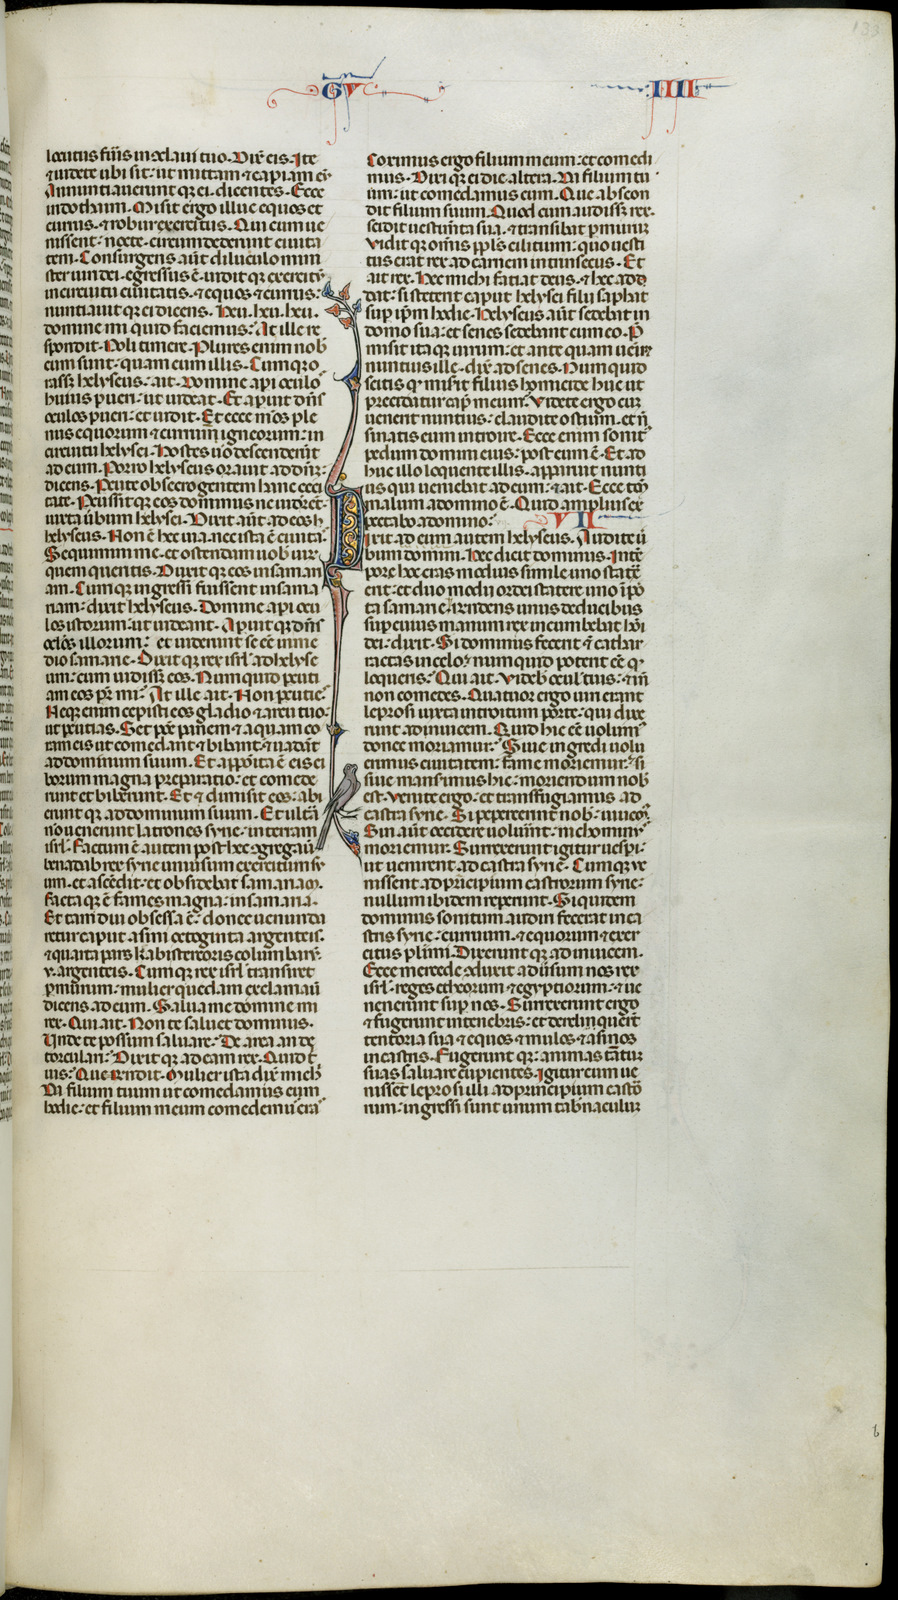 GV
IIII
133
locutus fu͛is in co̅claui tuo. Dix̅ eis. Ite
⁊ uidete ubi sit: ut mittam ⁊ capiam eu̅.
Annuntiauerunt q̅ ei dicentes. Ecce
in dothaim. Misit ergo illuc equos et
currus. ⁊ robur exercitus. Qui cum ue
nissent nocte. circumdederunt ciuita
tem. Consurgens aut̅ diluculo mini
ster uiri dei. egressus e̅. uidit q̅ exercitu̅
in circuitu ciuitatis. ⁊ equos ⁊ currus:
nuntiauit q̅ ei dicens. Heu. heu. heu.
domine mi quid faciemus: At ille re
spondit. Noli timere. Plures enim nob̅
cum sunt: quam cum illis. Cumq̅ o
rass̅ helyseus: ait. Domine api oculo
huius pueri: ut uideat. Et aperuit dn̅s
oculos pueri: et uidit. Et ecce mo̅s ple
nus equorum ⁊ curruu̅ igneorum: in
circuitu helysei. Hostes u̅o descenderu̅t
ad eum. Porro helyseus orauit ad dn̅m:
dicens. Percute obsecro gentem hanc ceci
tate. Percussit q̅ eos dominus ne uidere̅t
iuxta u̅bum helysei. Dixit aut̅ ad eos h
helyseus. Non e̅ hec uia. nec ista e̅ ciuita̅.
Sequimini me. et ostendam uob̅ uir̅
quem queritis. Duxit q̅ eos in samari
am. Cumq̅ ingressi fuissent in sama
riam: dixit helyseus. Domine api ocu
los istorum: ut uideant. Apuit q̅ dn̅s
oc̅los illorum: et uiderunt se e̅e in me
dio samarie. Dixit q̅ rex isrl̅ ad helyse
um: cum uidiss̅ eos. Num quid percuti
am eos pr̅ mi: At ille ait. Non percutie̅.
Neq̅ enim cepisti eos gladio ⁊ arcu tuo:
ut percutias. Set po̅e panem ⁊ aquam co
ram eis ut comedant ⁊ bibant: ⁊ uada̅t
ad dominum suum. Et apposita e̅ eis ci
borum magna preparatio: et comede
runt et biberunt. Et ⁊ dimisit eos: abi
erunt q̅ ad dominum suum. Et ult̅a
no̅ uenerunt latrones syrie: in terram
isrl̅. Factum e̅ autem post hec co̅gregauit
benadab rex syrie uniu̅sum exercitum sy
um. et asce̅dit: et obsidebat samariam.
Facta q̅ e̅ fames magna: in samaria.
Et tam diu obsessa e̅: donec uenunda
retur caput asini octoginta argenteis.
⁊ quarta pars kabi stercoris columbaru̅:
v. argenteis. Cumq̅ rex isrl̅ transiret
p̅ murum: mulier quedam exclamauit
dicens ad eum. Salua me domine mi
rex. Qui ait. Non te saluet dominus.
Unde te possum saluare: De area an de
torculari: Dixit q̅ ad eam rex. Quid t̅
uis: Que r̅ndit. Mulier ista dix̅ michi
Da filium tuum ut comedamus eum
hodie: et filium meum comedemus cra̅
Coximus ergo filium meum: et comedi
mus. Dixi q̅ ei die altera. Da filium tu
um: ut comedamus eum. Que abscon
dit filium suum. Quod cum audiss̅ rex.
scidit uestim̅ta sua. ⁊ transibat p̅ murum
Vidit q̅ omnis ppl̅s cilitium: quo uesti
tus erat rex ad carnem intrinsecus. Et
ait rex. Hec michi faciat deus. ⁊ hec add
dat: si steterit caput helysei filii saphat
sup ip̅m hodie. Helyseus aut̅ sedebat in
domo sua: et senes sedebant cum eo. P̅
misit itaq̅ uirum: et ante quam ueni͛
nuntius ille. dix̅ ad senes. Num quid
scitis q̅ misit filius homicide huc ut
precidatur cap̅ meum: Videte ergo cu̅
uenerit nuntius: claudite ostium. et n̅
sinatis eum introire. Ecce enim sonit̅
pedum domini eius: post eum e̅. Et ad
huc illo loquente illis. apparuit nunti
us qui ueniebat ad eum: ⁊ ait. Ecce ta̅tu̅
malum a domino e̅. Quid amplius ex
pectabo a domino:
VII
Dixit ad eum autem helyseus. Audite u̅
bum domini. Hec dicit dominus. In te̅
pore hoc cras modius simile uno state̅
erit: et duo modii ordei statere uno in po̅
ta samarie. R̅ndens unus de ducibus
sup cuius manum rex incumbebat ho̅i
dei: dixit. Si dominus fecerit e̅ cathar
ractas in celo: num quid poterit e̅e q̅
loqueris: Qui ait. Videb̅ ocul̅ tuis: ⁊ in̅
non comedes. Quatuor ergo uiri erant
leprosi iuxta introitum porte: qui dixe
runt adinuicem. Quid hic e̅e uolum̅
donec moriamur: Siue ingredi uolu
erimus ciuitatem: fame moriemur: si
siue manserimus hic: moriendum nob̅
est. Venite ergo: et transfugiamus ad
castra syrie. Si pepercerint nob̅: uiuem̅.
Sin aut̅ occidere uoluerint: nichomin̅
moriemur. Surrexerunt igitur uesperi:
ut uenirent ad castra syrie. Cumq̅ ue
nissent ad principium castrorum syrie:
nullum ibidem repererunt. Siquidem
dominus sonitum audiri fecerat in ca
stris syrie: curruum. ⁊ equorum ⁊ exer
citus plimi. Dixerunt q̅ ad inuicem.
Ecce mercede co̅duxit aduersum nos rex
isrl̅. reges ethеorum ⁊ egyptiorum: ⁊ ue
nenerunt sup nos. Surrexerunt ergo
⁊ fugerunt in tenebris: et derelinqueru̅t
tentoria sua ⁊ equos ⁊ mulos ⁊ asinos
in castris. Fugerunt q̅: animas ta̅tum
suas saluare cupientes. Igitur cum ue
nissent leprosi illi ad principium castro
rum: ingressi sunt unum tab̅naculum